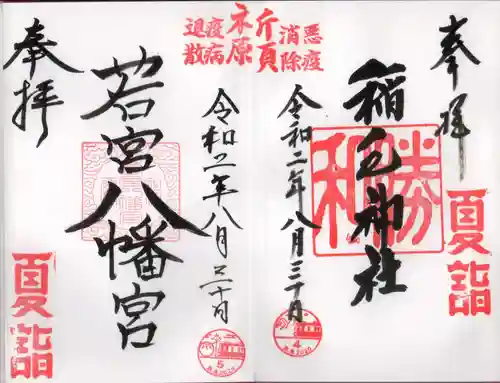 奉拝
夏詣
稲毛神社
勝
和
悪疫
消除
令和二年八月三十日
4
祈願
疫病
退散
令和二年八月三十日
5
若宮八幡宮
奉拝
夏詣